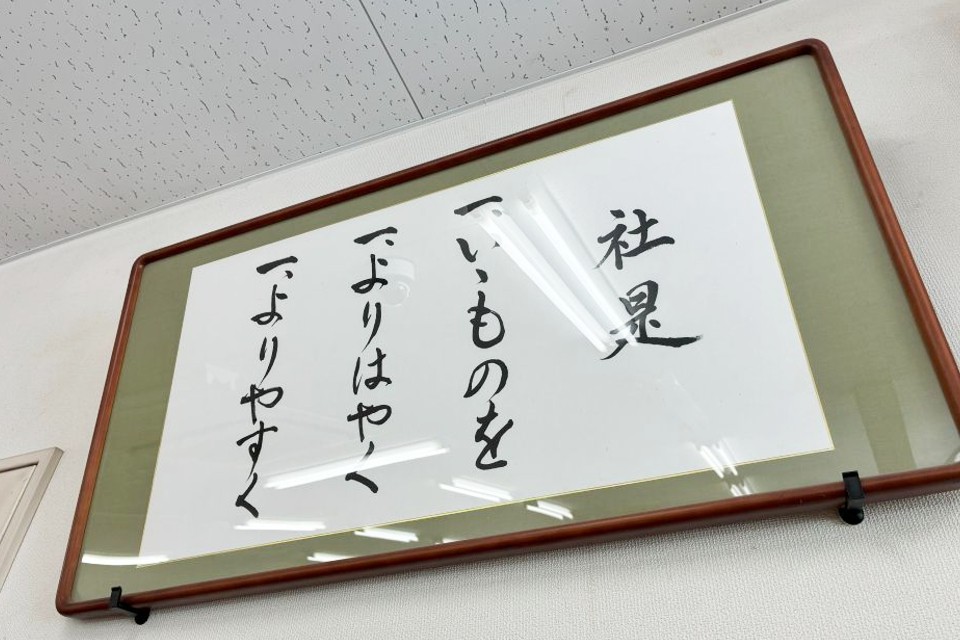 社是
一、いいものを
一、よりはやく
一、よりやすく